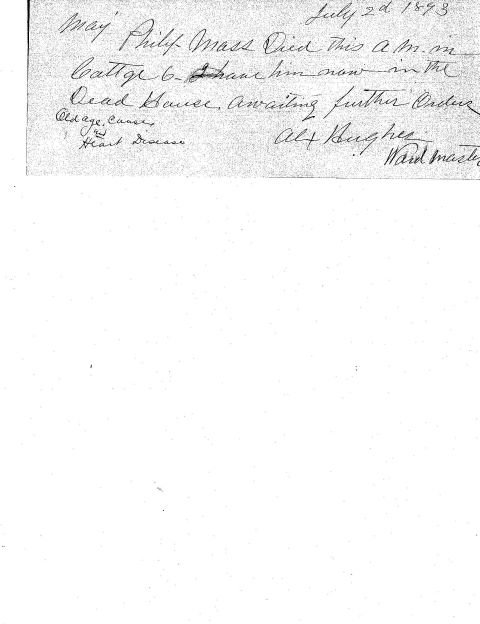 July 2d 1893
Maj
Philip Mass Died this A.M. in
Cattge 6. I have him now in the
Dead House. awaiting further Orders
Old age, Causes
and
Heart Disease
Alx Hughes
Ward Master